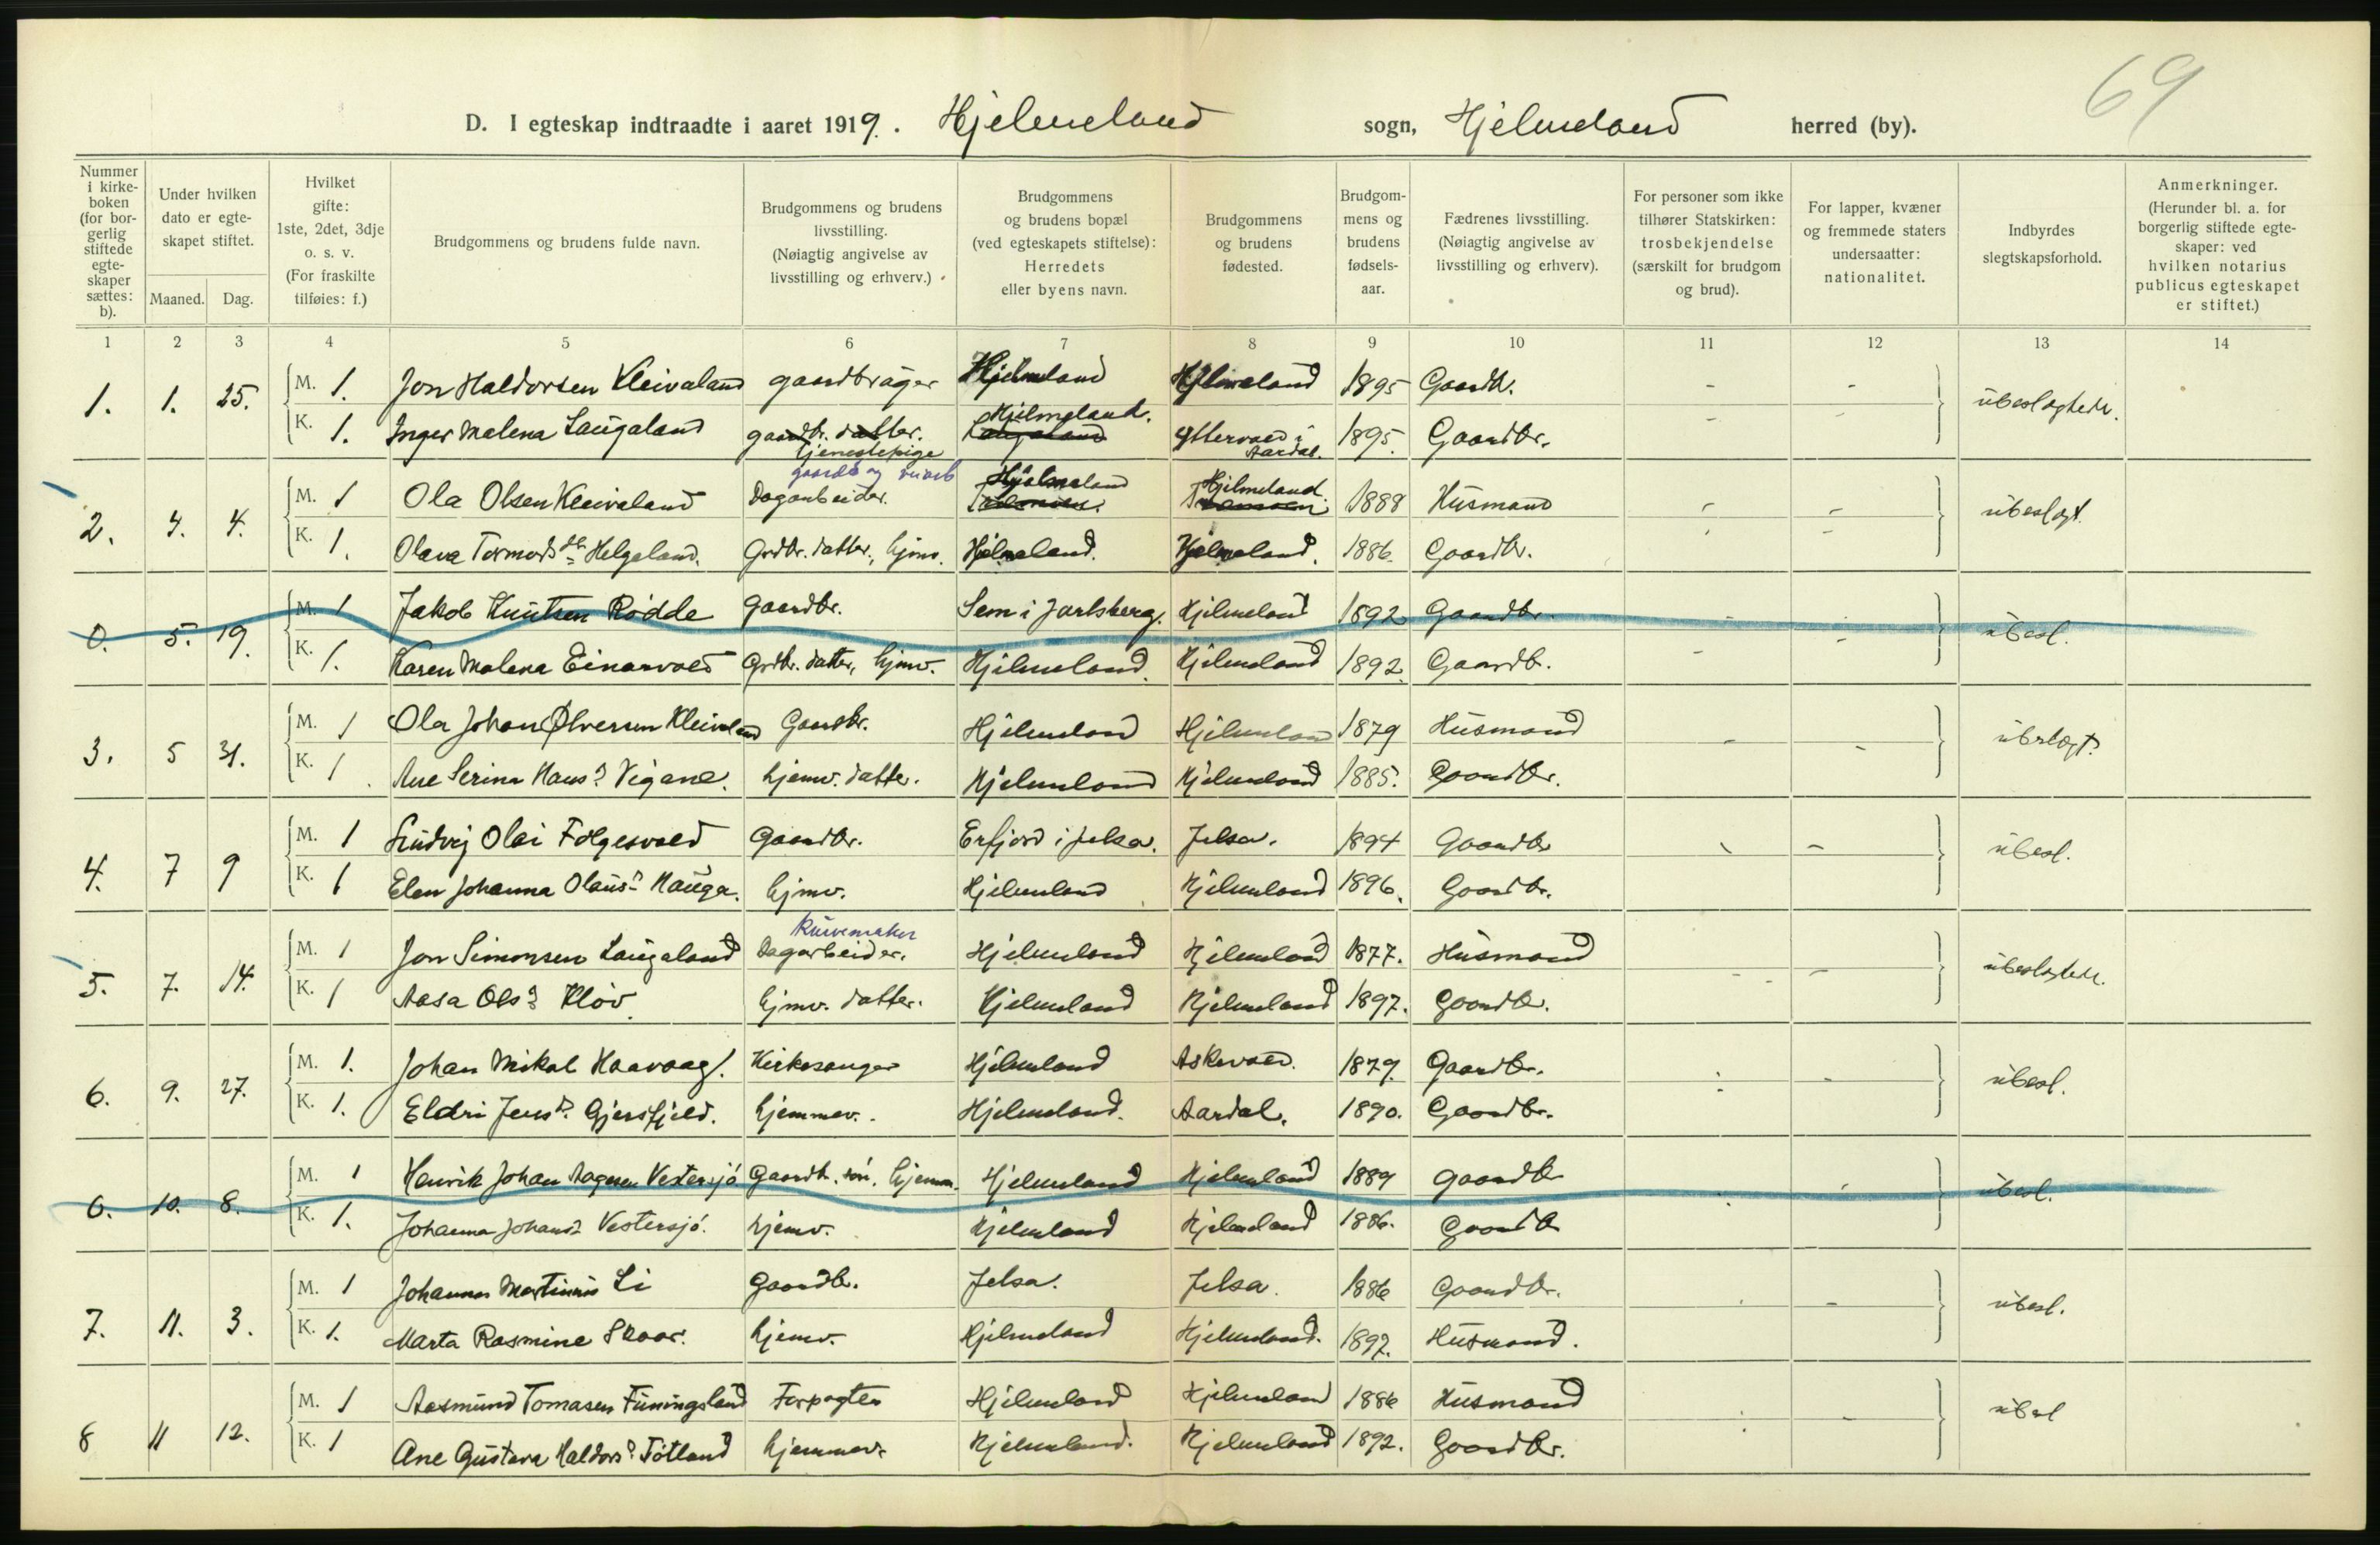 69
D. I egteskap indtraadte i aaret 1919. Hjelmeland sogn, Hjelmeland herred (by).
Nummer i kirke-boken (for bor-gerlig stiftede egte-skaper sættes: b).
Under hvilken dato er egte-skapet stiftet.
Maaned. Dag.
Hvilket gifte: 1ste, 2det, 3dje o. s. v. (For fraskilte tilføies: f.)
Brudgommens og brudens fulde navn.
Brudgommens og brudens livsstilling. (Nøiagtig angivelse av livsstilling og erhverv.)
Brudgommens og brudens bopæl (ved egteskapets stiftelse): Herredets eller byens navn.
Brudgommens og brudens fødested.
Brudgom-mens og brudens fødsels-aar.
Fædrenes livsstilling. (Nøiagtig angivelse av livsstilling og erhverv).
For personer som ikke tilhører Statskirken: trosbekjendelse (særskilt for brudgom og brud).
For lapper, kvæner og fremmede staters undersaatter: nationalitet.
Indbyrdes slegtskapsforhold.
Anmerkninger. (Herunder bl. a. for borgerlig stiftede egte-skaper: ved hvilken notarius publicus egteskapet er stiftet.)
1 2 3 4 5 6 7 8 9 10 11 12 13 14
1. 1. 25. M. 1. Jon Haldorsen Kleivaland gaardbruger Hjelmeland Hjelmeland 1895 Gaardb. - - ubeslegtede.
Hjelmeland.
K. 1. Inger Malena Laugaland gaardbr. datter. Laugaland Yttervoed i Aardal. 1895. Gaardbr. - -
tjenestepige
gaards og
2. 4. 4. M. 1 Ola Olsen Kleivaland Dagarbeider. Hjelmeland Hjelmeland. 1888 Husmand - - ubeslegt.
K. 1. Olava Tormodsdtr Helgeland. Grdbr. datter, hjmv. Hjelmeland. Hjelmeland. 1886. Gaardbr.
0. 5. 19. M. 1 Jakob Knutsen Rødde Gaardbr. Sem i Jarlsberg. Hjelmeland 1892 Gaardbr. - - ubesl.
K. 1. Karen Malena Einarvoed Grdbr. datter, hjmv. Hjelmeland. Hjelmeland 1892. Gaardb. - -
3. 5 31. M. 1 Ola Johan Ølversen Kleivaland Gaardbr. Hjelmeland Hjelmeland 1879 Husmand - - ubslegt.
K. 1 Ane Serina Hansd. Vigane. hjemv. datter. Hjelmeland Hjelmeland 1885. Gaardbr.
4. 7 9 M. 1 Ludvig Olai Folgesvoed Gaardbr. Erfjord i Jelsa. Jelsa. 1894 Gaardbr - - ubesl.
K. 1 Elen Johanna Olausd. Hauga. hjmv. Hjelmeland Hjelmeland 1896. Gaardbr.
Kurvemaker
5. 7. 14. M. 1 Jon Simonsen Laugaland Dagarbeider. Hjelmeland Hjelmeland 1877. Husmand - - ubeslegtede.
K. 1 Aasa Olsd. Kløv. hjmv. datter. Hjelmeland Hjelmeland 1897. Gaardbr.
6. 9. 27. M. 1. Johan Mikal Haavaag. Kirkesanger Hjelmeland Askevoed. 1879. Gaardbr. - - ubesl.
K. 1. Eldri Jensd. Gjersfjeld. hjemmev. Hjelmeland. Aardal. 1890. Gaardbr.
0. 10. 8. M. 1 Henrik Johan Aagesen Vestersjø Gaardb. søn, hjemm. Hjelmeland Hjelmeland 1889 Gaardb ubesl.
K. 1. Johanna Johansd. Vestersjø. hjemv. Hjelmeland Hjelmeland 1886. Gaardb
7. 11. 3. M. 1 Johannes Martinius Li Gaardb. Jelsa. Jelsa. 1886 Gaardbr. - ubesl.
K. 1. Marta Rasmine Skaar. hjemv. Hjelmeland Hjelmeland. 1897. Husmand.
8 11 12. M. 1 Aasmund Tomasen Funingsland Forpagter Hjelmeland Hjelmeland 1886 Husmand - ubesl
K. 1 Ane Gustava Haldorsd. Tøtland hjemmev. Hjelmeland. Hjelmeland 1892. Gaardbr.